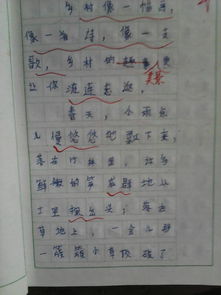 乡村像一幅画，
像一首诗，像一支
歌，乡村的 更
让你流连忘返。
春天，小雨点
儿慢悠悠地 下来，
落在竹林里，许多
鲜嫩的笋 地从
土里探出头；落在
草地上，一会儿那
一簇簇小草顶破了